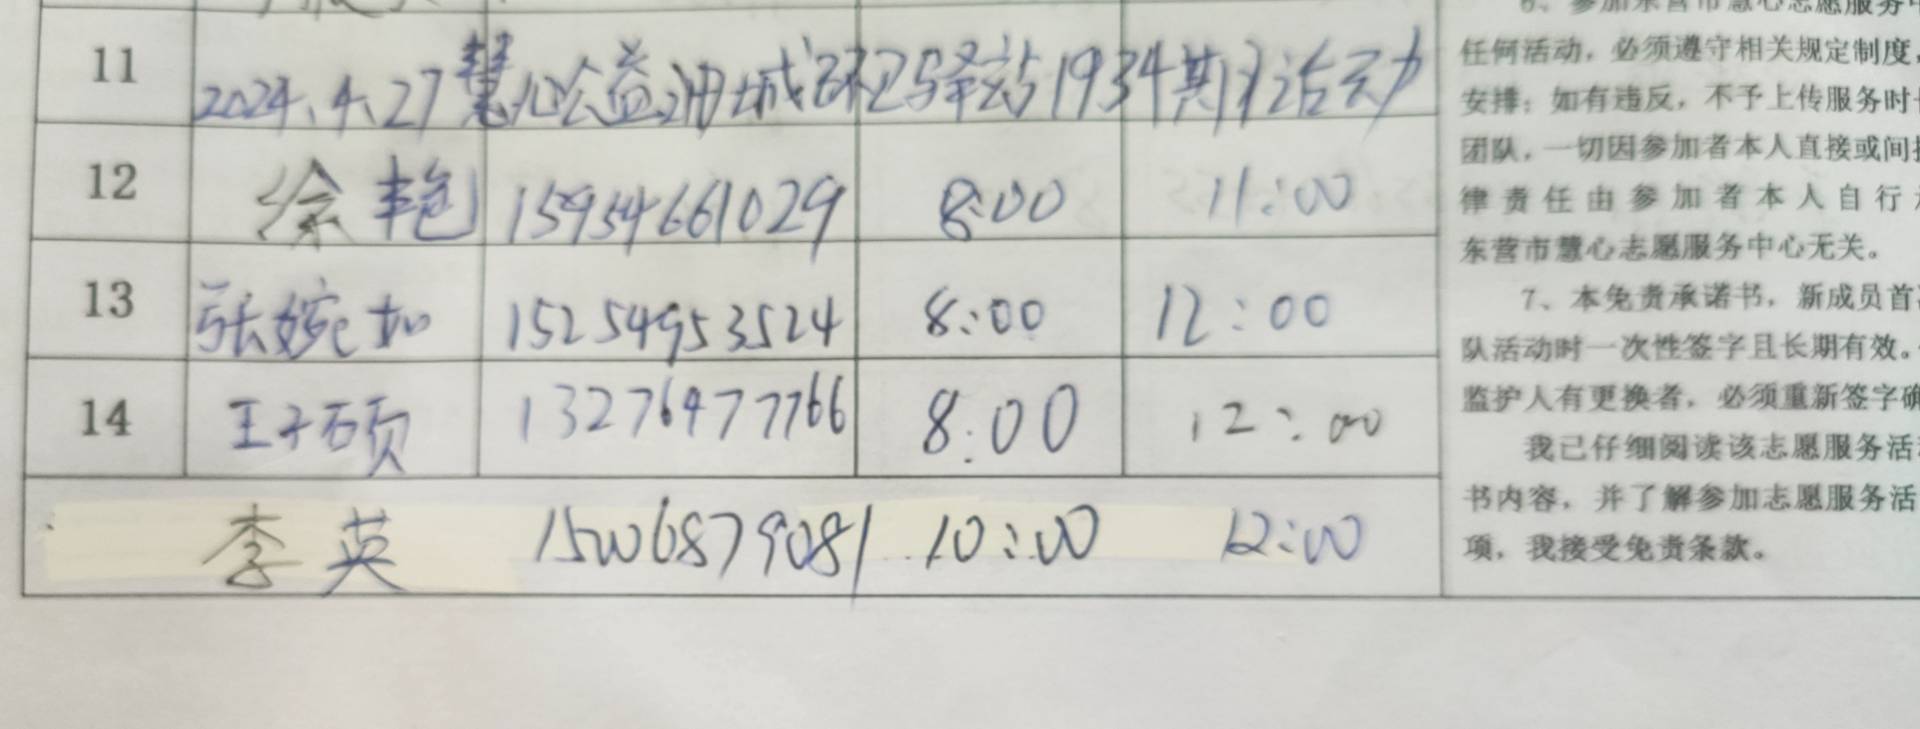 11 2024.4.27慧心公益油城环卫驿站1934期活动
12 徐艳 15954661029 8:00 11:00
13 张婉如 15254953524 8:00 12:00
14 王子硕 13276477766 8:00 12:00
李英 15006879081 10:00 12:00
6、参加东营市慧心志愿服务中
任何活动，必须遵守相关规定制度，
安排；如有违反，不予上传服务时
团队，一切因参加者本人直接或间
律责任由参加者本人自行
东营市慧心志愿服务中心无关。
7、本免责承诺书，新成员首
队活动时一次性签字且长期有效。
监护人有更换者，必须重新签字确
我已仔细阅读该志愿服务活
书内容，并了解参加志愿服务活
项，我接受免责条款。